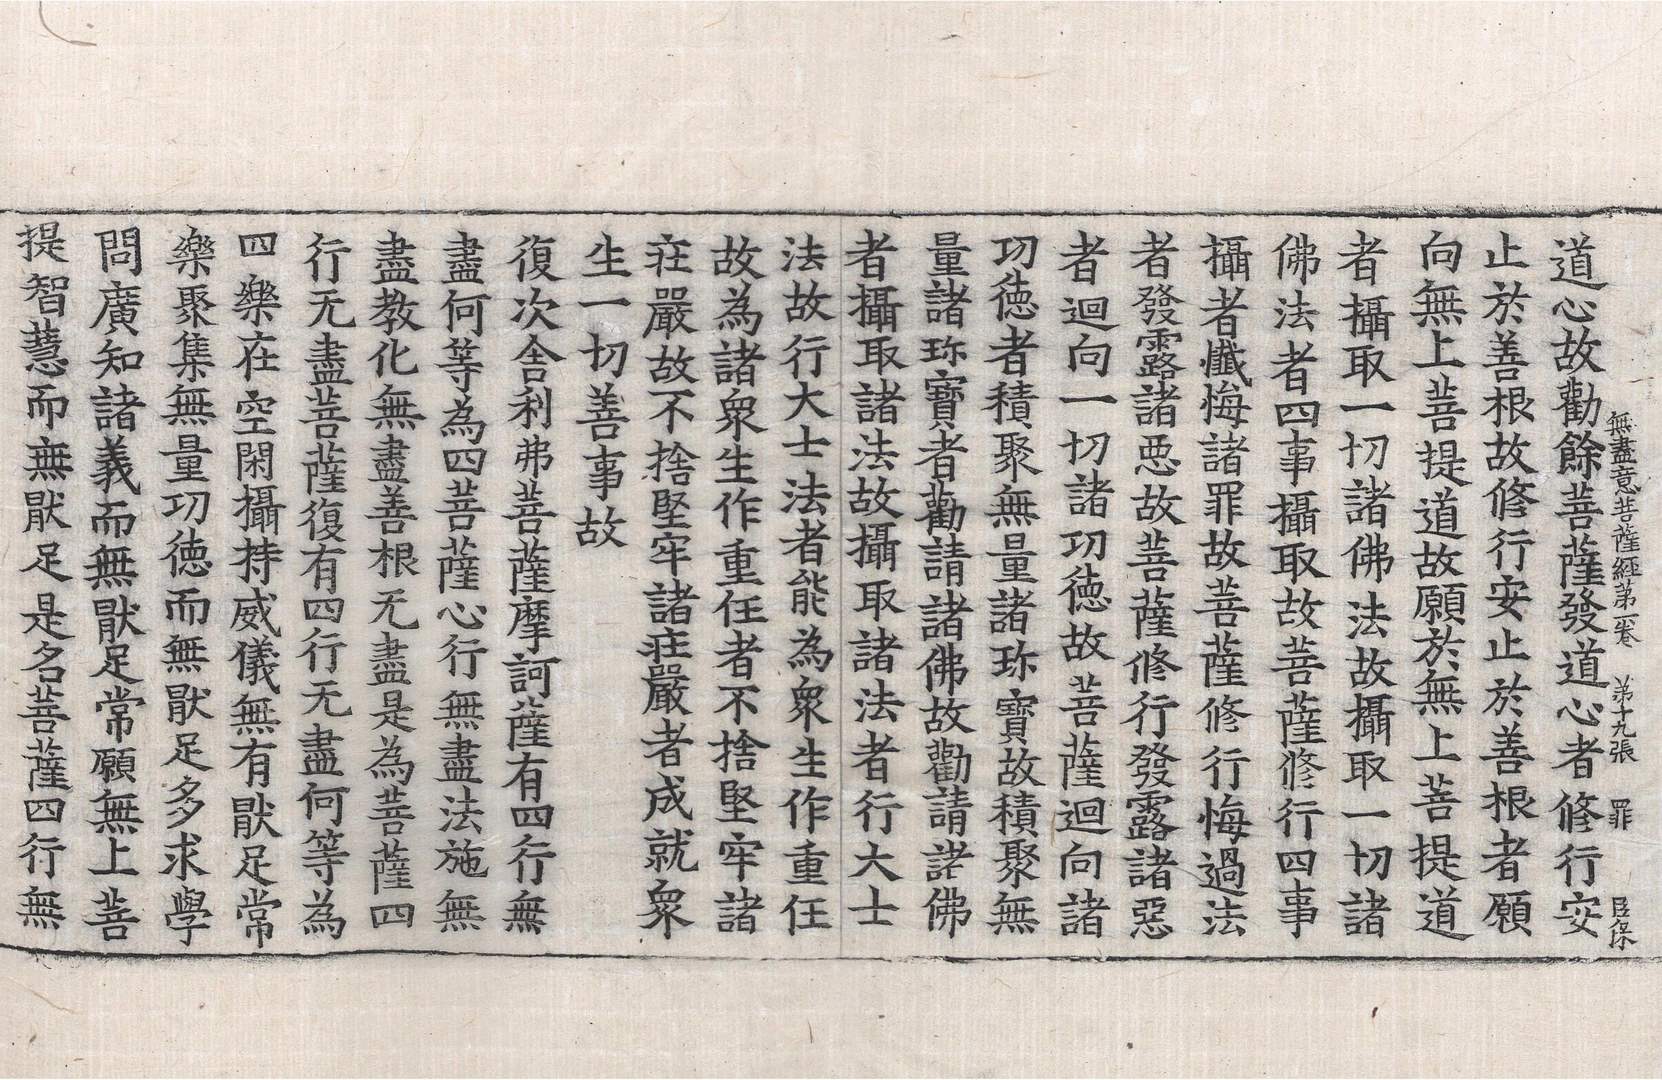 無盡意菩薩經第一卷　第十九張　罪　臣保
道心故勸餘菩薩發道心者修行安
止於善根故修行安止於善根者願
向無上菩提道故願於無上菩提道
者攝取一切諸佛法故攝取一切諸
佛法者四事攝取故菩薩修行四事
攝者懺悔諸罪故菩薩修行悔過法
者發露諸惡故菩薩修行發露諸惡
者迴向一切諸功徳故菩薩迴向諸
功徳者積聚無量諸珎寶故積聚無
量諸珎寶者勸請諸佛故勸請諸佛
者攝取諸法故攝取諸法者行大士
法故行大士法者能為衆生作重任
故為諸衆生作重任者不捨堅牢諸
莊嚴故不捨堅牢諸莊嚴者成就衆
生一切善事故
復次舍利弗菩薩摩訶薩有四行無
盡何等為四菩薩心行無盡法施無
盡教化無盡善根无盡是為菩薩四
行无盡菩薩復有四行无盡何等為
四樂在空閑攝持威儀無有猒足常
樂聚集無量功徳而無猒足多求學
問廣知諸義而無猒足常願無上菩
提智慧而無猒足是名菩薩四行無